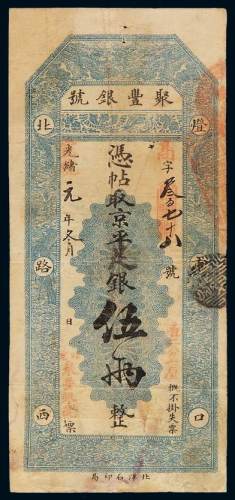 聚豐銀號
燈市口
北路西
字叁百七十八號
憑帖取京平足銀伍兩整
光緒元年冬月 日 票
概不掛失票
北洋石印局